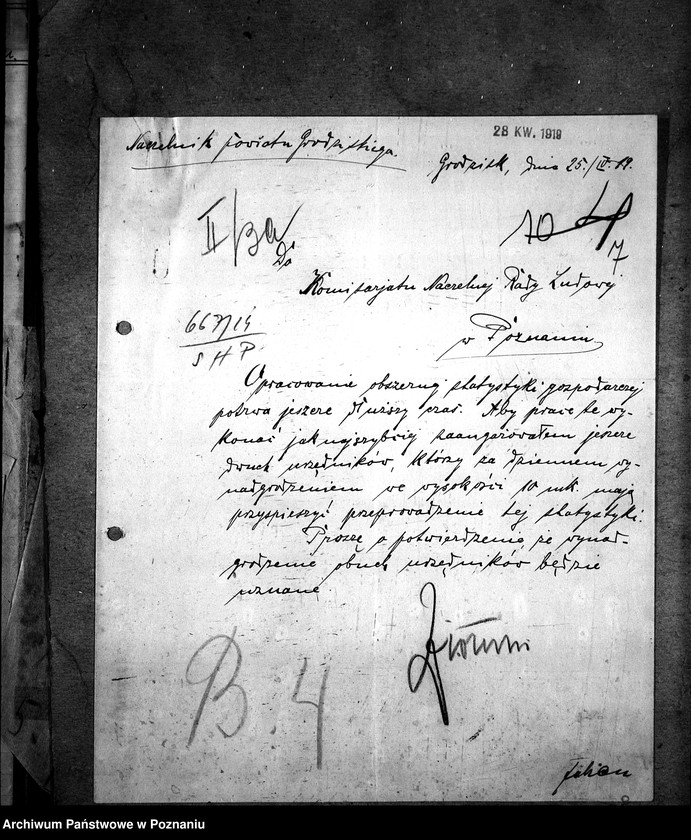 28 KW. 1919
Naczelnik powiatu Grodziskiego.
Grodzisk, dnia 25./IV. 19.
II/3a
10 4
7
Do
Komisarjatu Naczelnej Rady Ludowej
w Poznaniu.
667/19
S H P.
Opracowanie obszernej statystyki gospodarczej
potrwa jeszcze dłuższy czas. Aby prace te wy-
konać jak najszybciej zaangażowałem jeszcze
dwuch urzędników, którzy za dziennem wy-
nadgrodzeniem we wysokości 10 mk. mają
przyspieszyć przeprowadzenie tej statystyki.
Proszę o potwierdzenie, że wynad-
grodzenie obuch urzędników będzie
uznane
B. 4
Archiwum Państwowe w Poznaniu